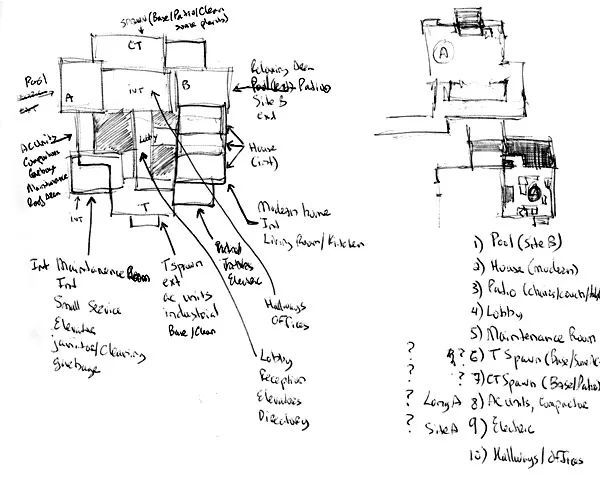 Spawn (Base/Patio/Clean
some plants)
CT
Pool
A
INT
B
Relaxing Area
Pool (ext) Patio
Site B
ext
Lobby
AC Units
Compactor
Garbage
Maintenance
House
(int)
INT
T
Modern home
Int
Living Room/Kitchen
Int Maintenance Room
Int
Small Service
Elevator
janitor/Cleaning
garbage
T Spawn
ext
ac units
industrial
Base/Clean
Electric
Hallways
Offices
Lobby
Reception
Elevators
Directory
A
A
1) Pool (Site B)
2) House (modern)
3) Patio (chairs/couch/
4) Lobby
5) Maintenance Room
? ?? 6) T Spawn (Base/
? ? 7) CT Spawn (Base/Patio)
? Long A 8) AC Units, Compactor
? Site A 9) Electric
10) Hallways/Offices